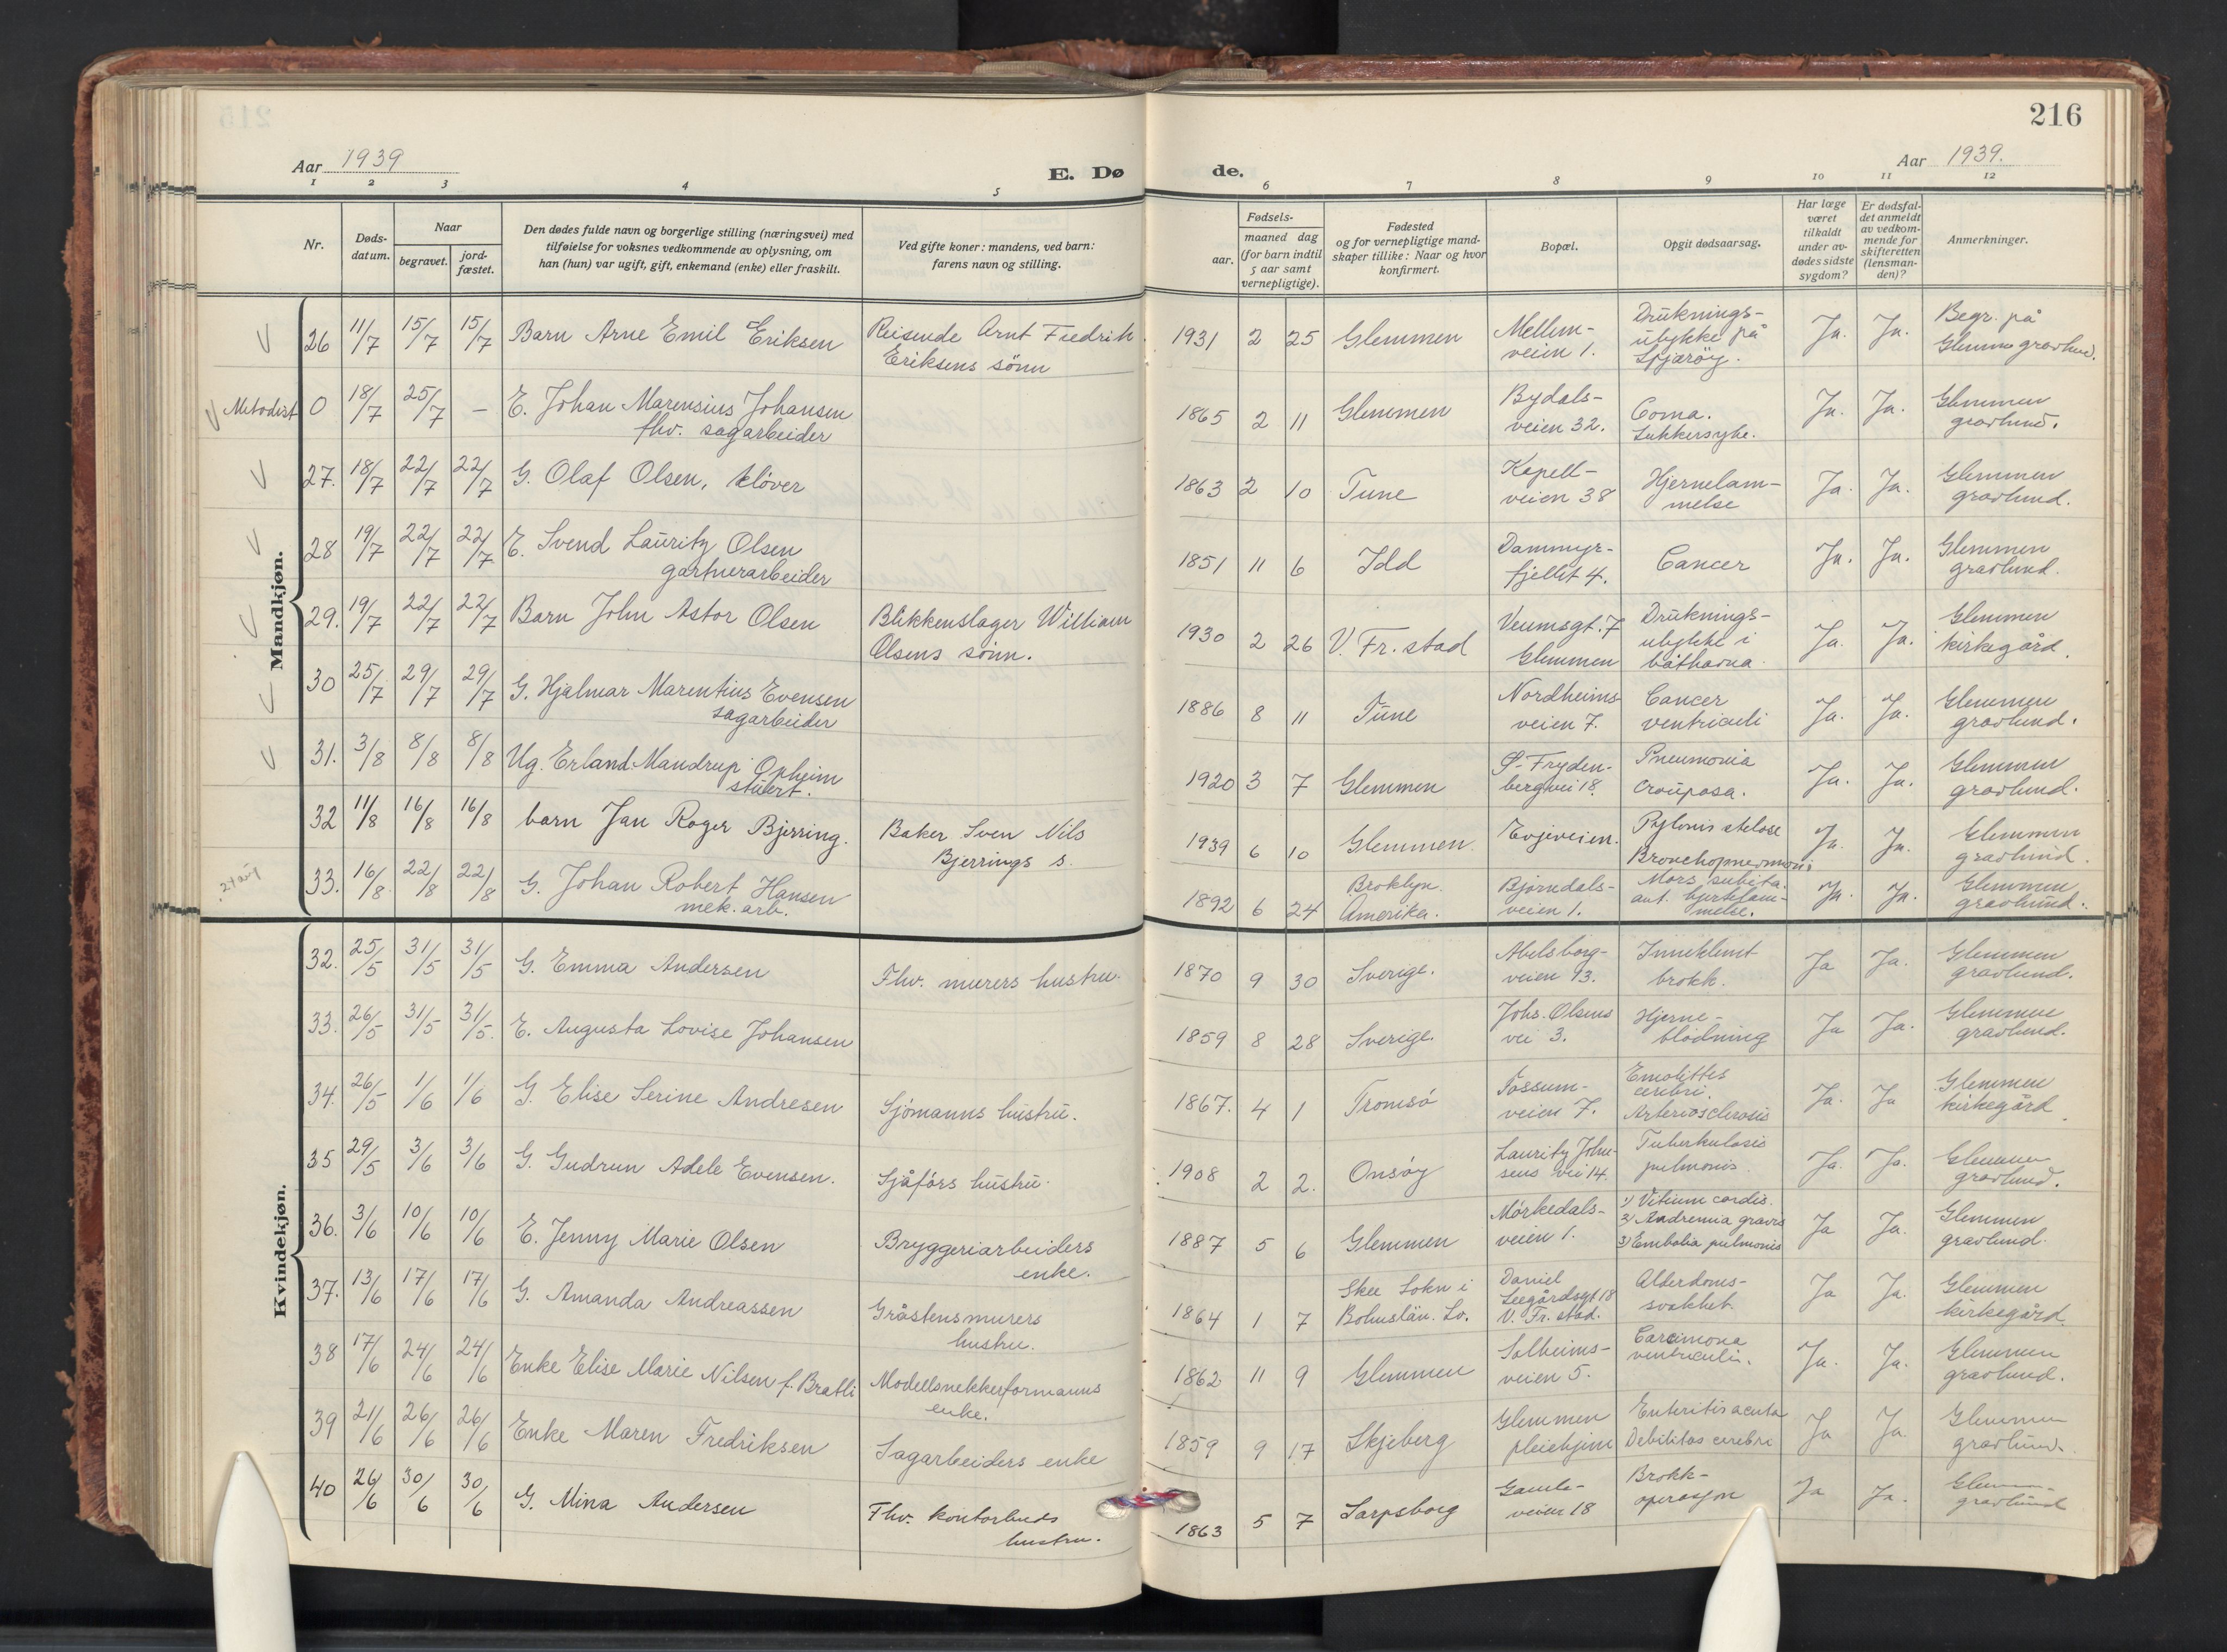 216
Aar 1939
E. Dø
de.
Aar 1939.
1 2 3 4 5 6 7 8 9 10 11 12
Nr.
Døds-
datum.
Naar
begravet.
jord-
fæstet.
Den dødes fulde navn og borgerlige stilling (næringsvei) med
tilføielse for voksnes vedkommende av oplysning, om
han (hun) var ugift, gift, enkemand (enke) eller fraskilt.
Ved gifte koner: mandens, ved barn:
farens navn og stilling.
Fødsels-
aar.
maaned dag
(for barn indtil
5 aar samt
vernepligtige).
Fødested
og for vernepligtige mand-
skaper tillike: Naar og hvor
konfirmert.
Bopæl.
Opgit dødsaarsag.
Har læge
været
tilkaldt
under av-
dødes sidste
sygdom?
Er dødsfal-
det anmeldt
av vedkom-
mende for
skifteretten
(lensman-
den)?
Anmerkninger.
Mandkjøn.
26 11/7 15/7 15/7 Barn Arne Emil Eriksen Reisende Arnt Fredrik 1931 2 25 Glemmen Mellem- Druknings- Ja. Ja. Begr. på
Eriksens sönn veien 1. ulykke på Glemme gravlund.
Spjæröy.
Metodist 0 18/7 25/7 – E. Johan Marensius Johansen 1865 2 11 Glemmen Bydals- Coma. Ja. Ja. Glemmen
fhv. sagarbeider veien 32. Sukkersyke. gravlund.
27. 18/7 22/7 22/7 G. Olaf Olsen, klöver 1863 2 10 Tune Kapell- Hjernelam- Ja. Ja. Glemmen
veien 38 melse gravlund.
28 19/7 22/7 22/7 E. Svend Lauritz Olsen 1851 11 6 Idd Dammyr- Cancer Ja. Ja. Glemmen
gartnerarbeider fjellet 4. gravlund.
29. 19/7 22/7 22/7 Barn John Astor Olsen Blikkenslager William 1930 2 26 V. Fr. stad Veumsgt. 7 Druknings- Ja. Ja. Glemmen
Olsens sönn. Glemmen ulykke i kirkegård.
båthavna.
30 25/7 29/7 29/7 G. Hjalmar Marentius Evensen 1886 8 11 Tune Nordheims- Cancer Ja. Ja. Glemmen
sagarbeider veien 7. ventriculi gravlund.
31. 3/8 8/8 8/8 Ug. Erland Mandrup Opheim 1920 3 7 Glemmen S. Fryden- Pneumonia Ja. Ja. Glemmen
stuert. bergvei 18. crouposa. gravlund.
32 11/8 16/8 16/8 barn Jan Roger Bjerring. Baker Sven Nils 1939 6 10 Glemmen. Evjeveien. Pylorisstelose Ja. Ja. Glemmen
Bjerrings s. Bronchopneumoni. gravlund.
33. 16/8 22/8 22/8 G. Johan Robert Hansen 1892 6 24 Broklyn. Bjørndals- Mors subita. Ja. Ja. Glemmen
mek. arb. Amerika. veien 1. ant. hjertelam- gravlund.
melse.
Kvindekjøn.
32. 25/5 31/5 31/5 G. Emma Andersen Fhv. murers hustru. 1870 9 30 Sverige. Abelsborg- Inneklemt Ja Ja. Glemmen
veien 13. brokk. gravlund.
33. 26/5 31/5 31/5. E. Augusta Lovise Johansen 1859 8 28 Sverige. Johs. Olsens Hjerne- Ja Ja. Glemmen
vei 3. blödning gravlund.
34. 26/5 1/6 1/6 G. Elise Serine Andresen Sjömanns hustru. 1867. 4 1 Tromsö Fossum- Emolittes Ja. Ja Glemmen
veien 7. cerebri. kirkegård
Arteriosclerosis
35 29/5 3/6 3/6 G. Gudrun Adele Evensen. Sjåförs hustru. 1908 2 2. Onsöy Lauritz John- Tuberkulosis Ja. Ja. Glemmen
sens vei 14. pulmonis gravlund.
36. 3/6 10/6 10/6 E. Jenny Marie Olsen Bryggeriarbeiders 1887 5 6 Glemmen Mörkedals- 1) Vitium cordis. Ja Ja. Glemmen
enke. veien 1. 2) Andremia gravis gravlund.
3) Embolia pulmonis
37. 13/6 17/6 17/6 G. Amanda Andreassen Gråstensmurers 1864 1 7 Skee Sokn i Daniel Alderdoms- Ja Ja. Glemmen
hustru. Bohuslän. Sv. Leegårdsgt 18 svakhet. kirkegård.
V. Fr. stad.
38 17/6 24/6 24/6 Enke Elise Marie Nilsen f. Bratli Modellsnekkerformanns 1862 11 9 Glemmen Solheims- Carcimona Ja. Ja. Glemmen
enke. veien 5. ventriculi. gravlund.
39 21/6 26/6 26/6 Enke Maren Fredriksen Sagarbeiders enke 1859 9 17 Skjeberg Glemmen Enteritis acuta Ja Ja Glemmen
pleiehjem Debilitas cerebri gravlund.
40 26/6 30/6 30/6 G. Mina Andersen Fhv. kontorbuds 1863 5 7 Sarpsborg Gamle- Brokk- Ja Ja. Glemmen
hustru. veien 18 operasjon gravlund